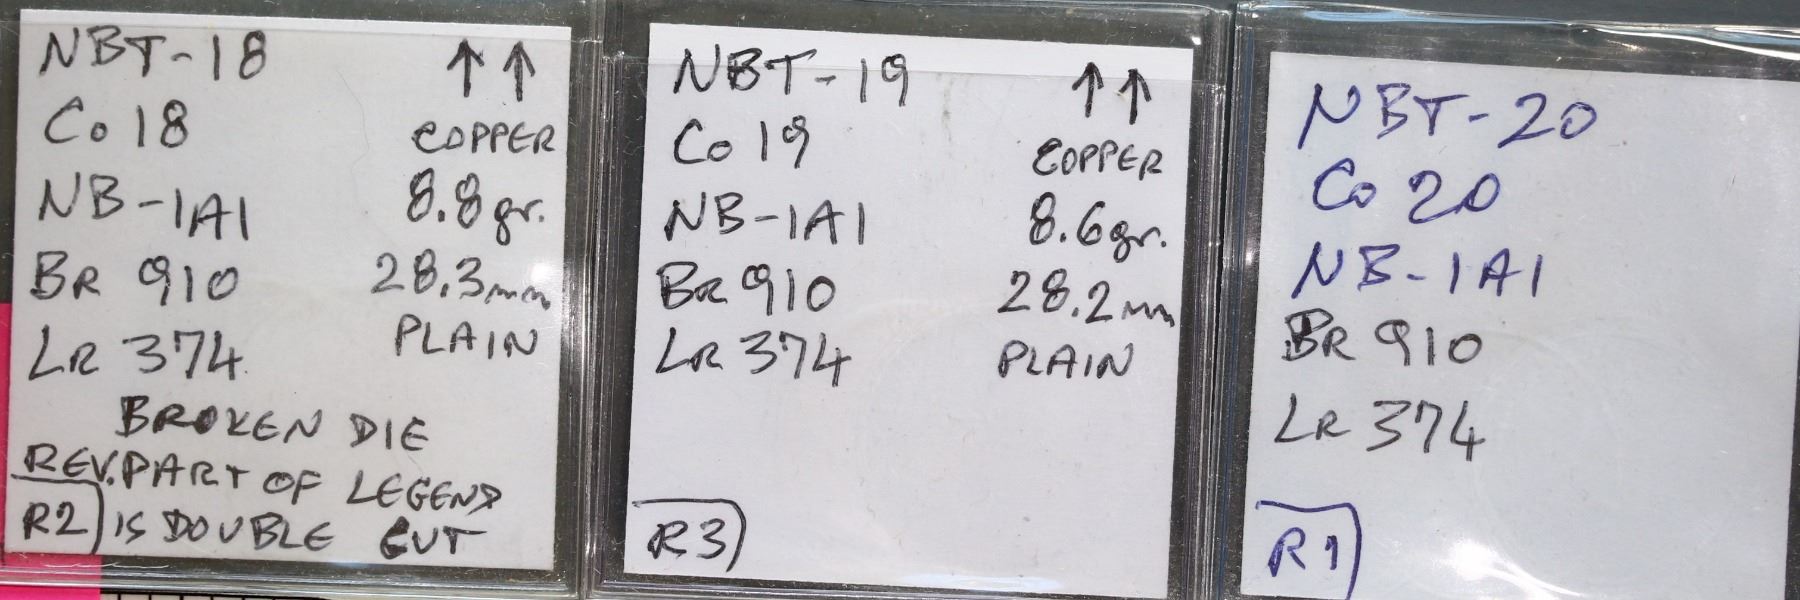 NBT-18 ↑↑
Co 18 COPPER
NB-1A1 8.8gr.
BR 910 28.3mm
LR 374 PLAIN
BROKEN DIE
REV. PART OF LEGEND
R2 IS DOUBLE CUT
NBT-19 ↑↑
Co 19 COPPER
NB-1A1 8.6gr.
BR 910 28.2mm
LR 374 PLAIN
R3
NBT-20
Co 20
NB-1A1
BR 910
LR 374
R1